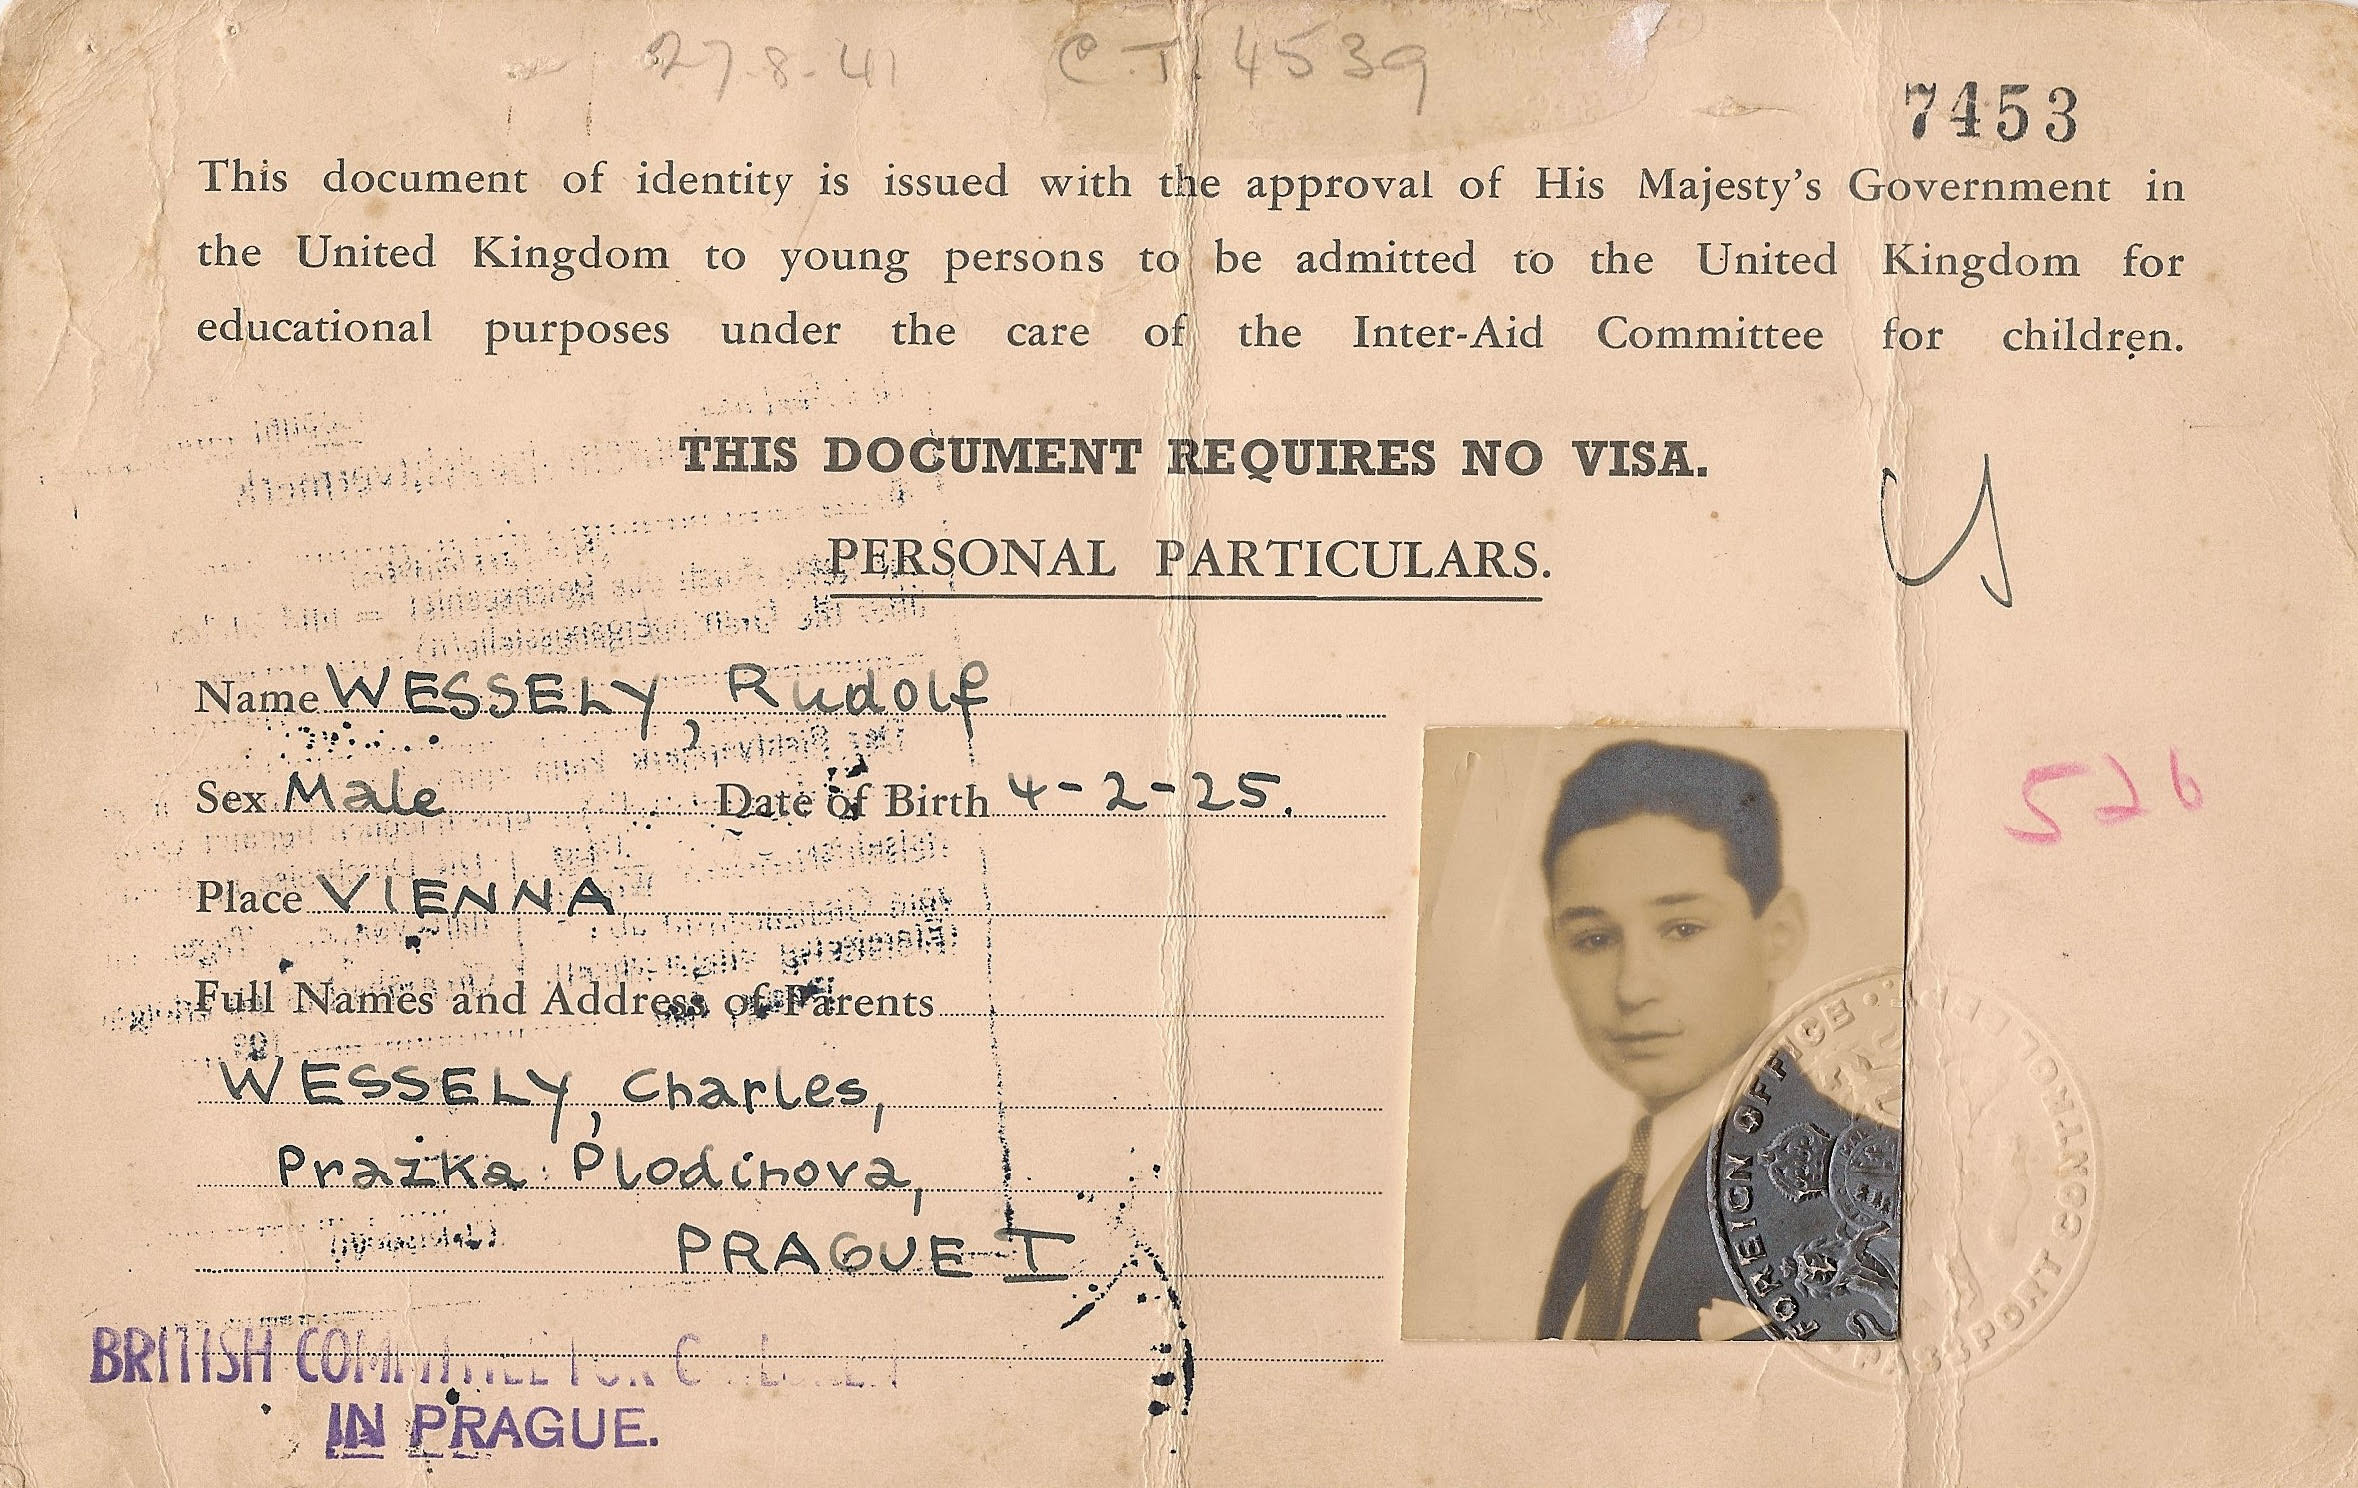 27-8-41 C.T. 4539
7453
This document of identity is issued with the approval of His Majesty's Government in
the United Kingdom to young persons to be admitted to the United Kingdom for
educational purposes under the care of the Inter-Aid Committee for children.
THIS DOCUMENT REQUIRES NO VISA.
PERSONAL PARTICULARS.
Name WESSELY, Rudolf
Sex Male Date of Birth 4-2-25.
526
Place VIENNA
Full Names and Address of Parents
WESSELY, Charles,
Prazka Plodinova,
PRAGUE I
FOREIGN OFFICE PASSPORT CONTROL
BRITISH COMMITTEE FOR CHILDREN
IN PRAGUE.